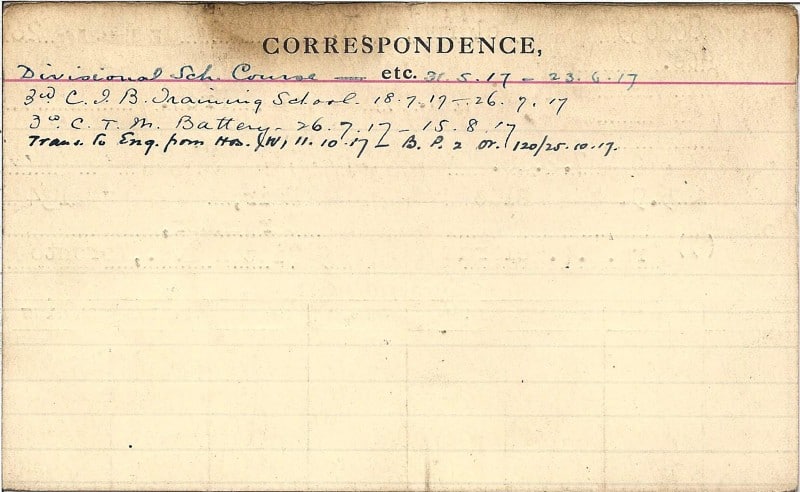 CORRESPONDENCE,
etc.
Divisional Sch. Course — 31.5.17 - 23.6.17
3rd C.I.B. Training School. 18.7.17 - 26.7.17
3rd C. T. M. Battery - 26.7.17 - 15.8.17
Trans. to Eng. from Hos. (W) 11.10.17 - B. P. 2 Or. 120/25.10.17.